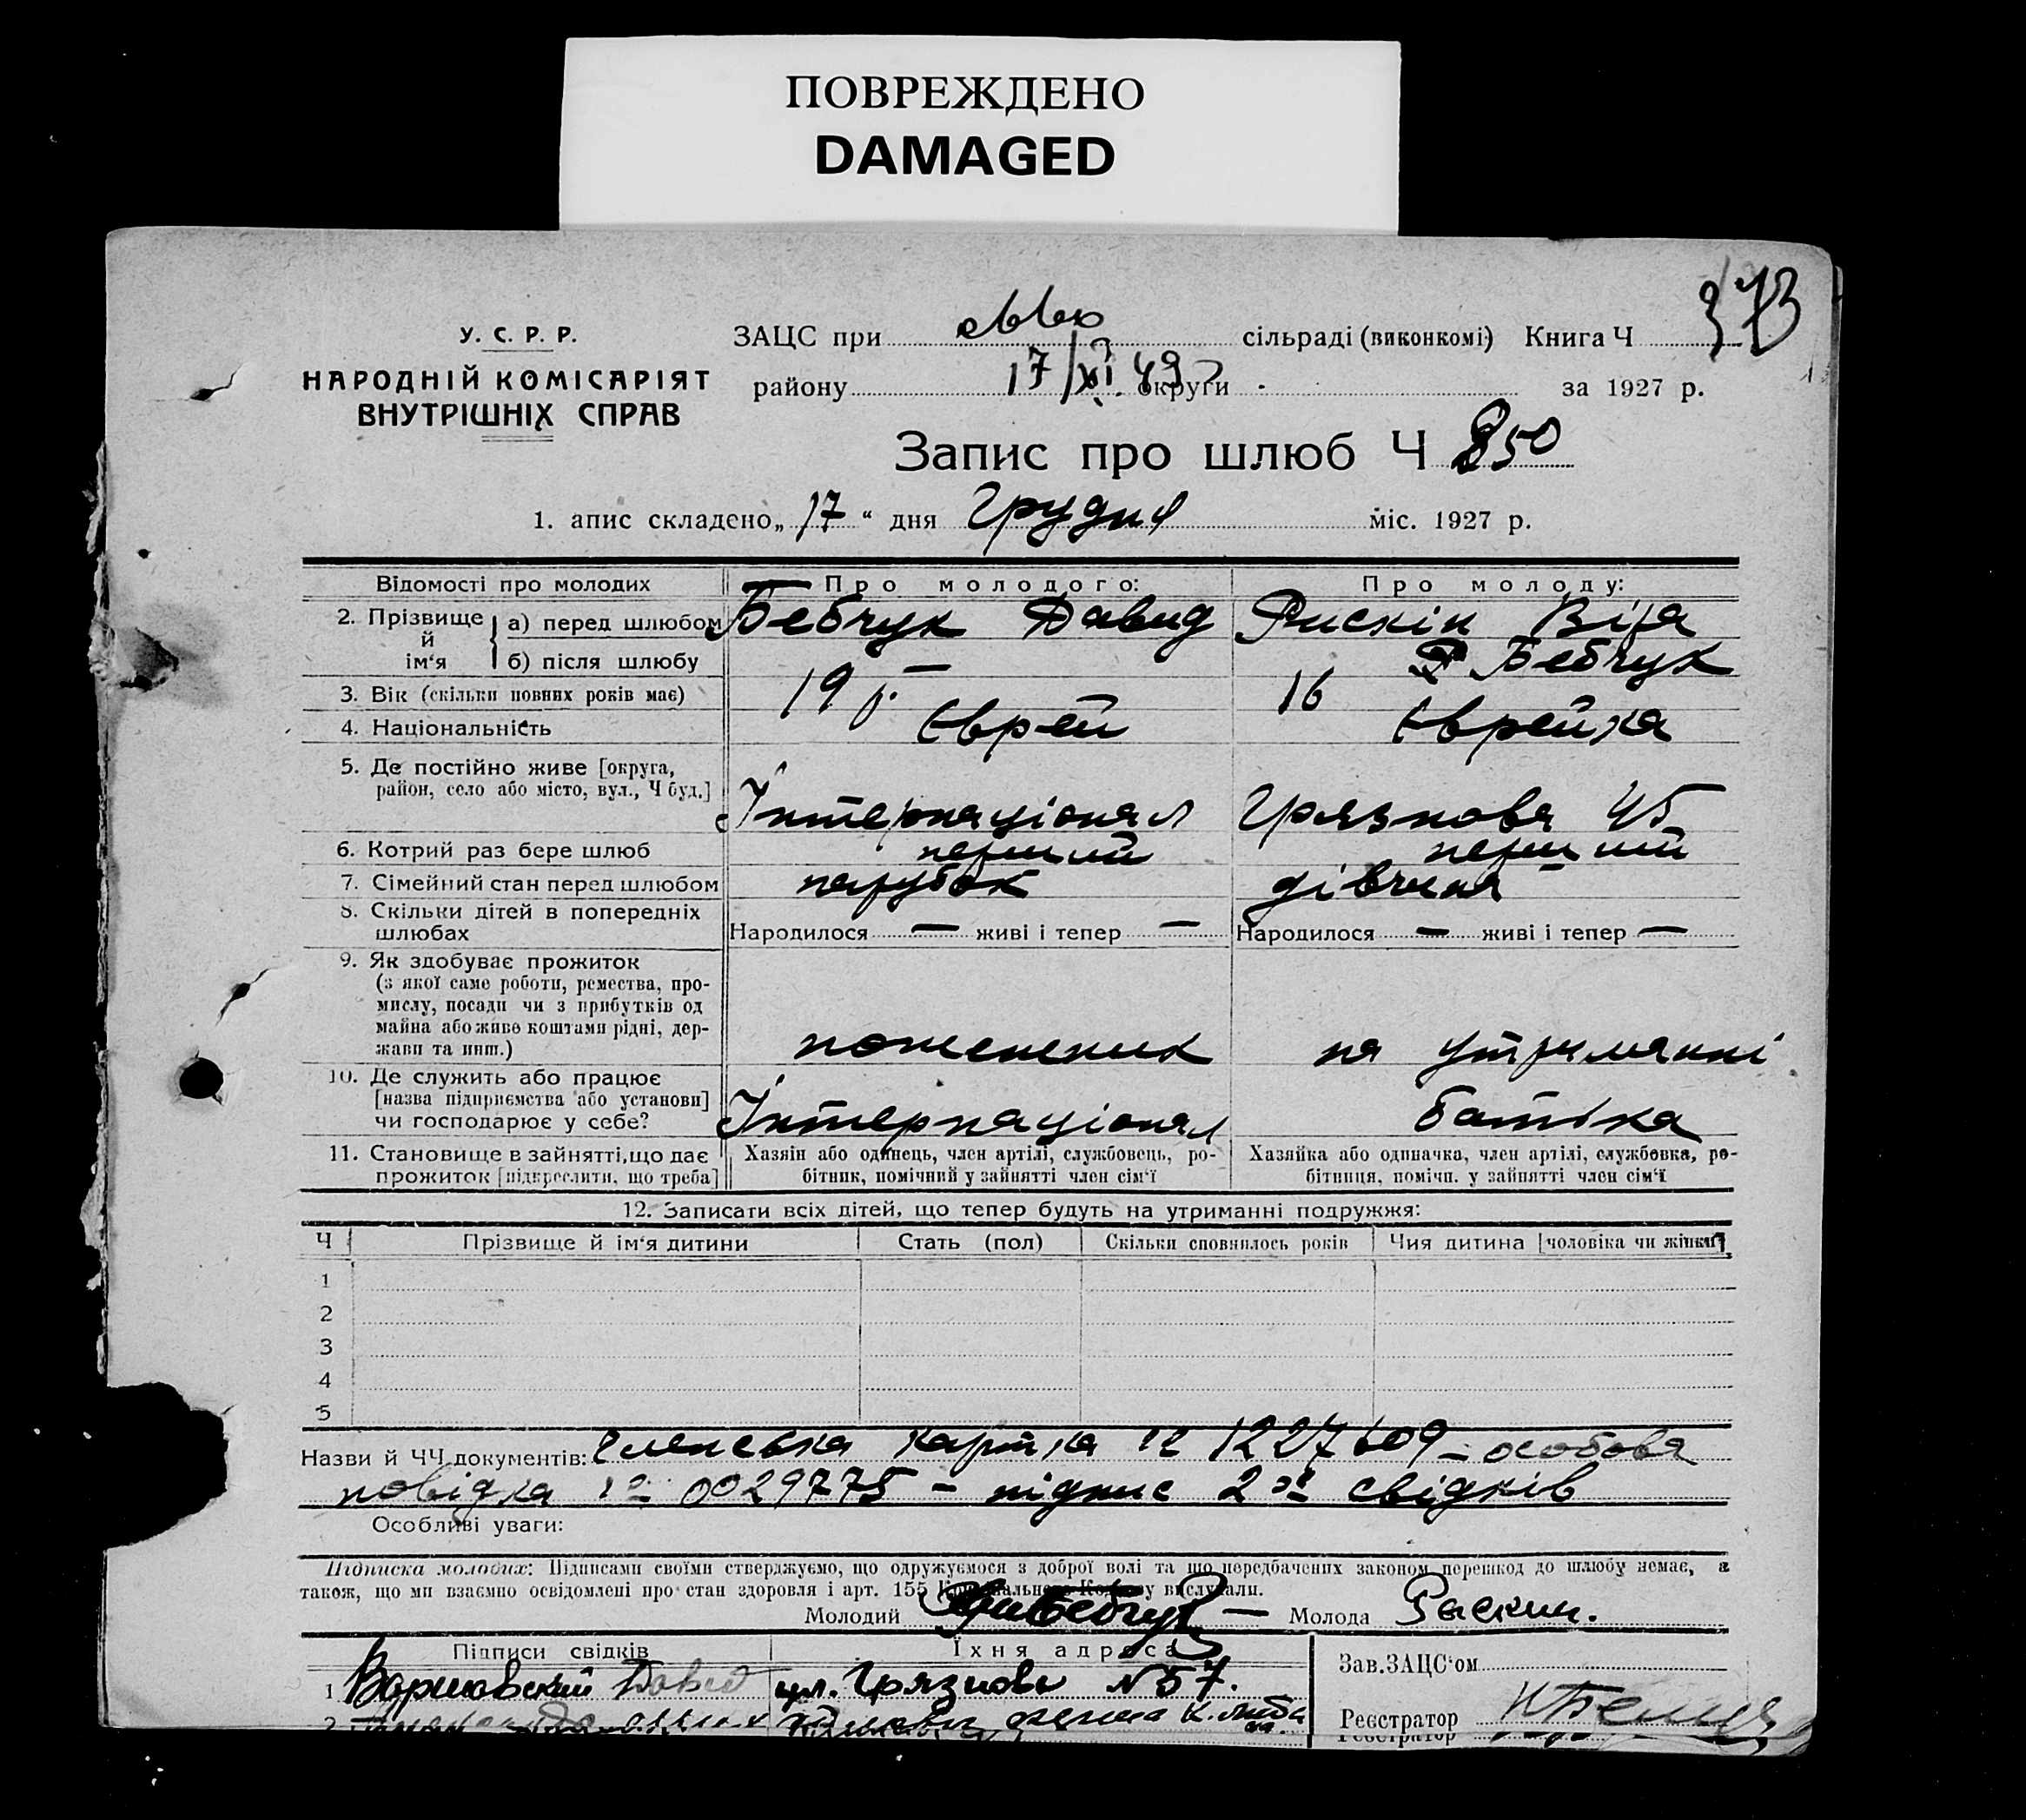 ПОВРЕЖДЕНО
DAMAGED
373
У. С. Р. Р.
НАРОДНІЙ КОМІСАРІЯТ
ВНУТРІШНІХ СПРАВ
ЗАЦС при сільраді (виконкомі) Книга Ч
району 17/XI 49 округи за 1927 р.
Запис про шлюб Ч 850
1. апис складено „ 17 “ дня Грудня міс. 1927 р.
Відомості про молодих Про молодого: Про молоду:
2. Прізвище й ім‘я а) перед шлюбом Бебчук Давид Рискін Віра
б) після шлюбу — Бебчук
3. Вік (скільки повних років має) 19 р. 16
4. Національність Єврей Єврейка
5. Де постійно живе [округа,
район, село або місто, вул., Ч буд.] Інтернаціонал Грязнова 45
6. Котрий раз бере шлюб перший перший
7. Сімейний стан перед шлюбом парубок дівчина
8. Скільки дітей в попередніх
шлюбах Народилося — живі і тепер — Народилося — живі і тепер —
9. Як здобуває прожиток
(з якої саме роботи, ремества, про-
мислу, посади чи з прибутків од
майна або живе коштами рідні, дер-
жави та инш.) на утриманні
10. Де служить або працює
[назва підприємства або установи]
чи господарює у себе? Інтернаціонал батька
11. Становище в зайнятті, що дає
прожиток [підкреслити, що треба]
Хазяін або одинець, член артілі, службовець, ро-
бітник, помічний у зайнятті член сім‘ї
Хазяйка або одиначка, член артілі, службовка, ро-
бітниця, помічн. у зайнятті член сім‘ї
12. Записати всіх дітей, що тепер будуть на утриманні подружжя:
Ч Прізвище й ім‘я дитини Стать (пол) Скільки сповнилось років Чия дитина [чоловіка чи жінки]
1
2
3
4
5
Назви й ЧЧ документів: Членська картка № 1227609 – особова
повідка № 0029775 – підпис 2ох свідків
Особливі уваги:
Підписка молодих: Підписами своїми стверджуємо, що одружуємося з доброї волі та що передбачених законом перешкод до шлюбу немає, а
також, що ми взаємно освідомлені про стан здоровля і арт. 155 Кримінального Кодексу вислухали.
Молодий Бебчук — Молода Рыскин.
Підписи свідків Їхня адреса
1 Варшавский Давид ул. Грязнова № 57.
2
Зав. ЗАЦС‘ом
Реєстратор
Реєстратор